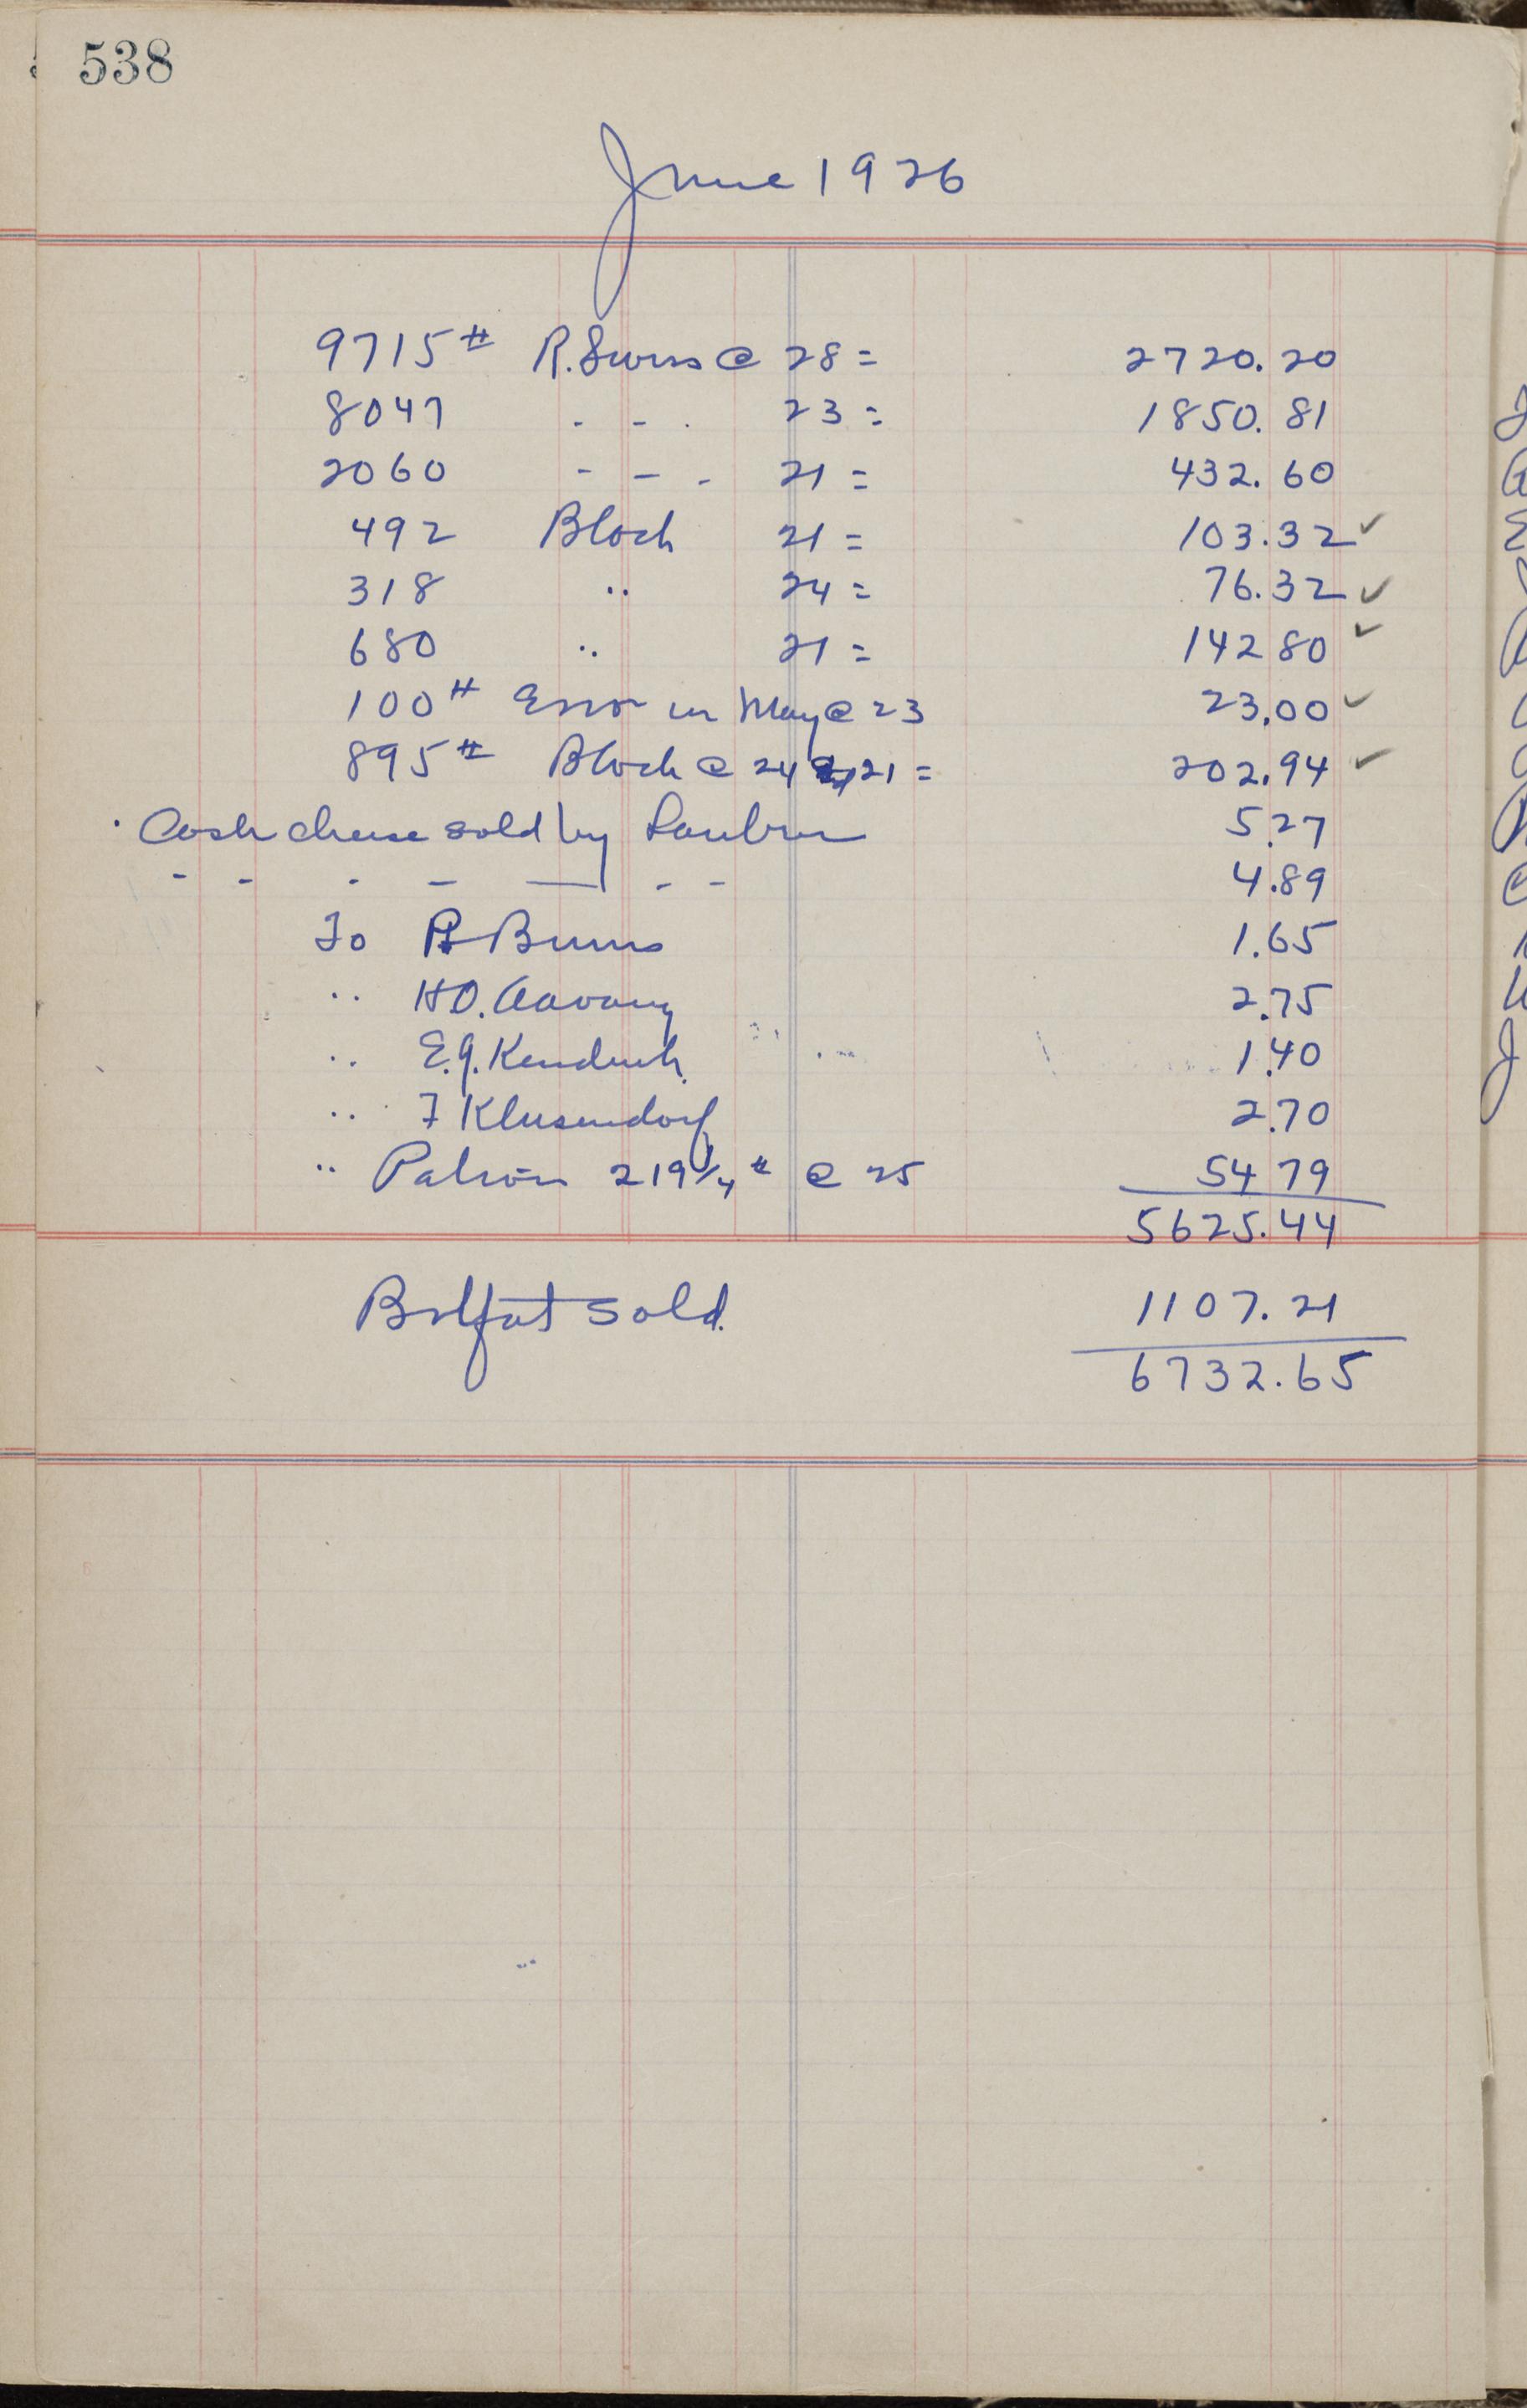 538
June 1926
9715# R. Swiss @ 28 = 2720.20
8047 - - . 23 = 1850.81
2060 - - - 21 = 432.60
492 Block 21 = 103.32 ✓
318 " 24 = 76.32 ✓
680 " 21 = 142 80 ✓
100# Error in May @ 23 23.00 ✓
895# Block @ 24 21 = 202.94 ✓
Cash cheese sold by 5.27
- - - - — - - 4.89
To Burns 1.65
" H.O. Aavang 2.75
" E.J. Kendrick 1.40
" F Klusendorf 2.70
" Patrons 219 1/4# @ 25 54 79
5625.44
Bttfat sold. 1107.21
6732.65